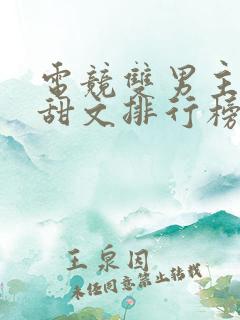 電競雙男主
甜文排行榜
王泉因
未经同意禁止转载